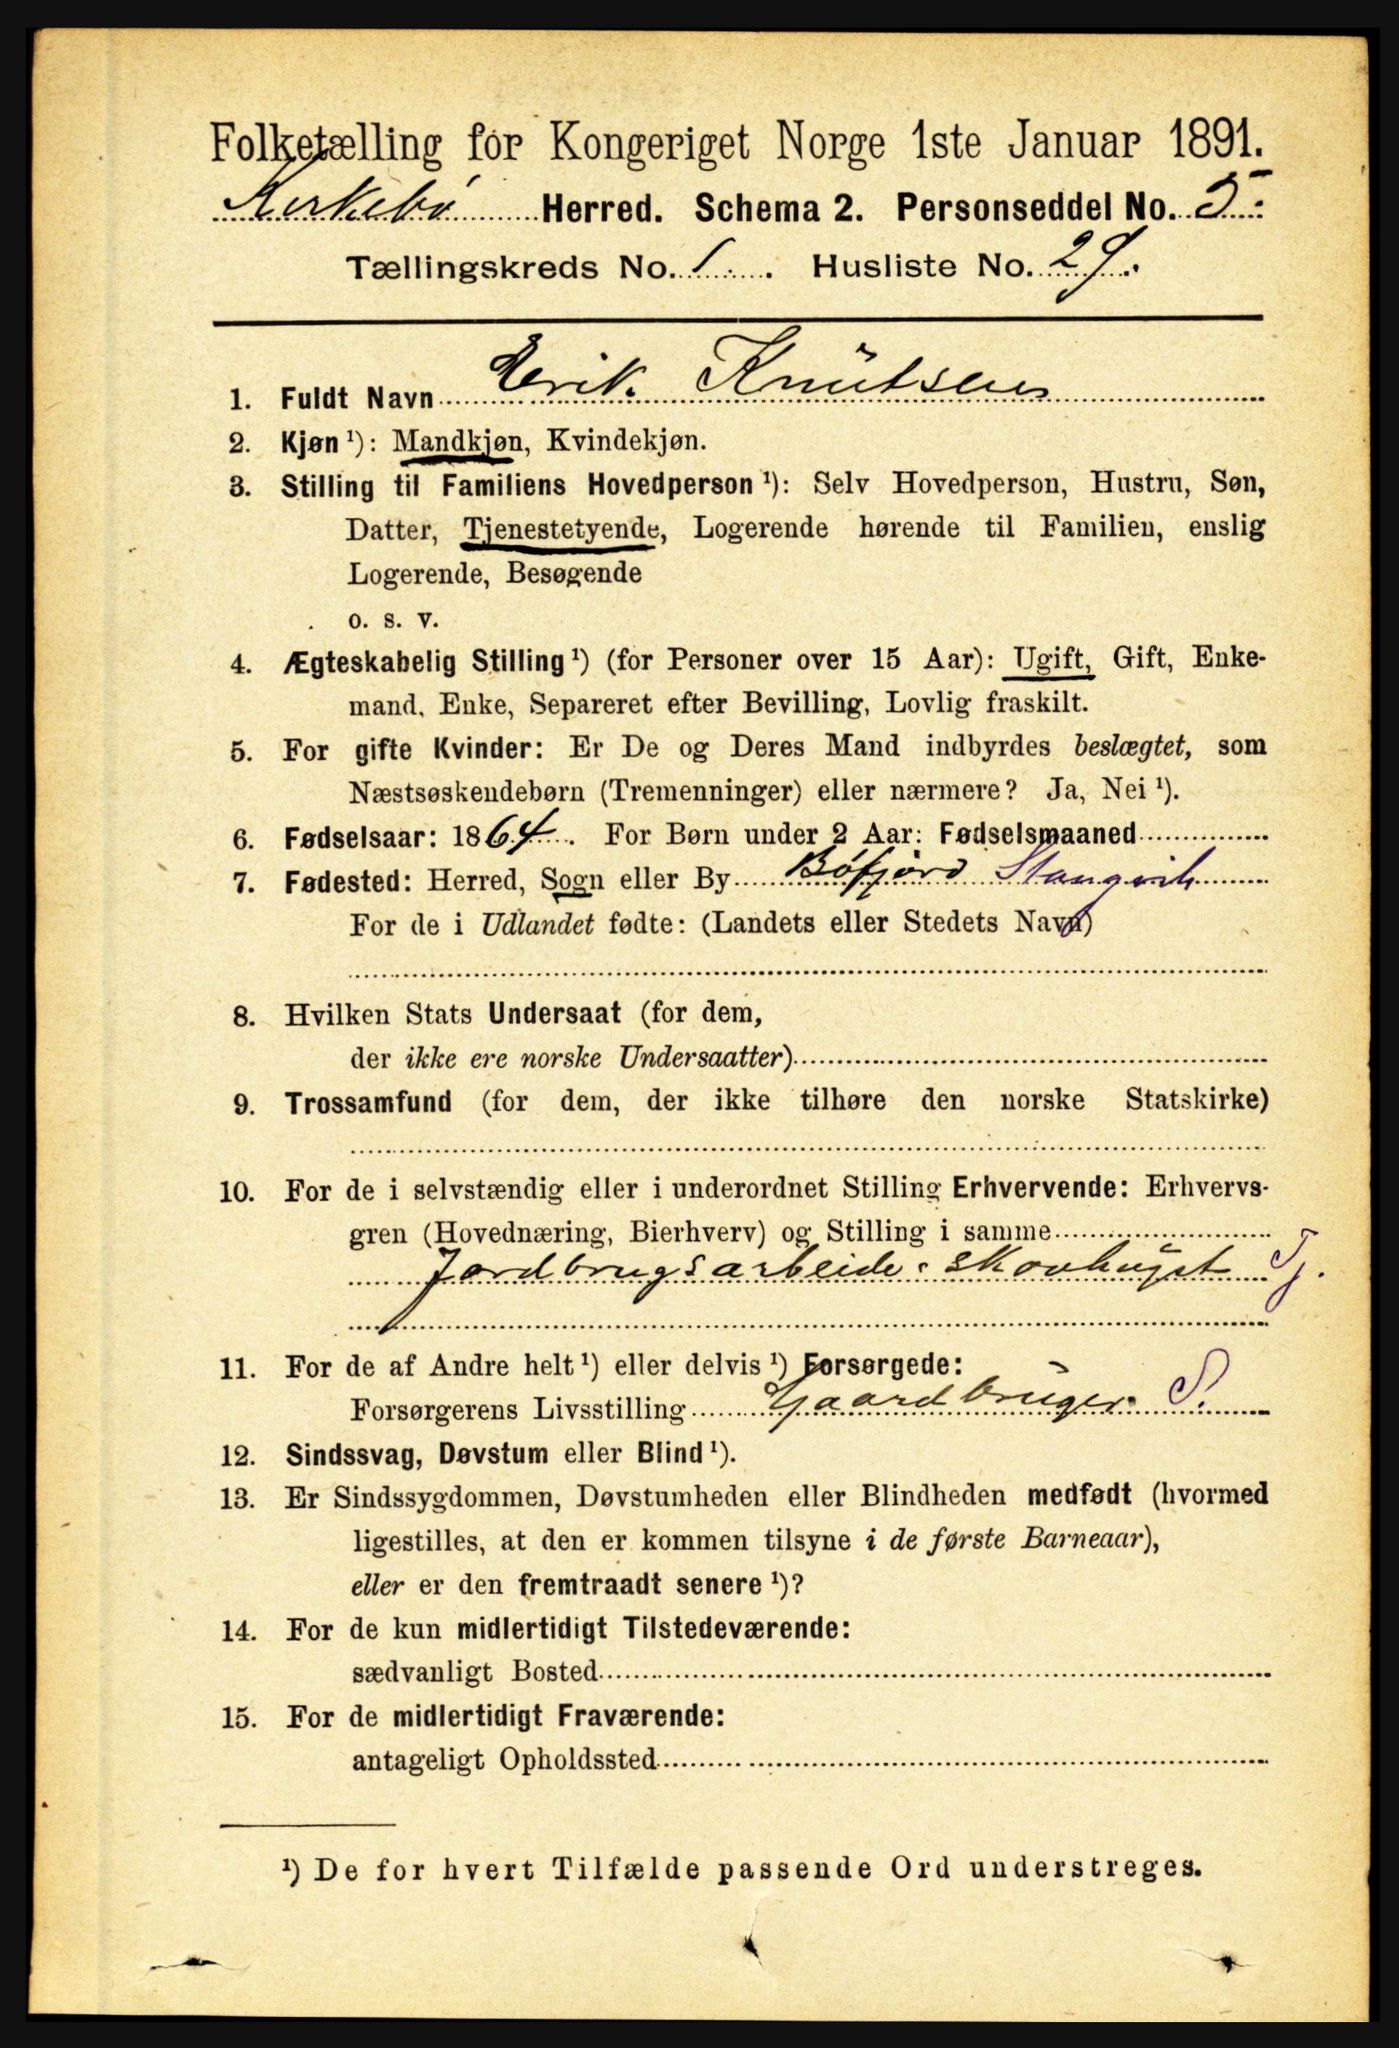 Folketælling for Kongeriget Norge 1ste Januar 1891.
Kirkebø Herred. Schema 2. Personseddel No. 5.
Tællingskreds No. 1. Husliste No. 29.
1. Fuldt Navn Erik Knutsen
2. Kjøn ¹): Mandkjøn, Kvindekjøn.
3. Stilling til Familiens Hovedperson ¹): Selv Hovedperson, Hustru, Søn,
Datter, Tjenestetyende, Logerende hørende til Familien, enslig
Logerende, Besøgende
o. s. v.
4. Ægteskabelig Stilling ¹) (for Personer over 15 Aar): Ugift, Gift, Enke-
mand, Enke, Separeret efter Bevilling, Lovlig fraskilt.
5. For gifte Kvinder: Er De og Deres Mand indbyrdes beslægtet, som
Næstsøskendebørn (Tremenninger) eller nærmere? Ja, Nei ¹).
6. Fødselsaar: 1864. For Børn under 2 Aar: Fødselsmaaned
7. Fødested: Herred, Sogn eller By Bøfjord Stangvik
For de i Udlandet fødte: (Landets eller Stedets Navn)
8. Hvilken Stats Undersaat (for dem,
der ikke ere norske Undersaatter)
9. Trossamfund (for dem, der ikke tilhøre den norske Statskirke)
10. For de i selvstændig eller i underordnet Stilling Erhvervende: Erhvervs-
gren (Hovednæring, Bierhverv) og Stilling i samme
Jordbrugsarbeide. skovhugst Tj.
11. For de af Andre helt ¹) eller delvis ¹) Forsørgede:
Forsørgerens Livsstilling Gaardbruger S.
12. Sindssvag, Døvstum eller Blind ¹).
13. Er Sindssygdommen, Døvstumheden eller Blindheden medfødt (hvormed
ligestilles, at den er kommen tilsyne i de første Barneaar),
eller er den fremtraadt senere ¹)?
14. For de kun midlertidigt Tilstedeværende:
sædvanligt Bosted
15. For de midlertidigt Fraværende:
antageligt Opholdssted
¹) De for hvert Tilfælde passende Ord understreges.